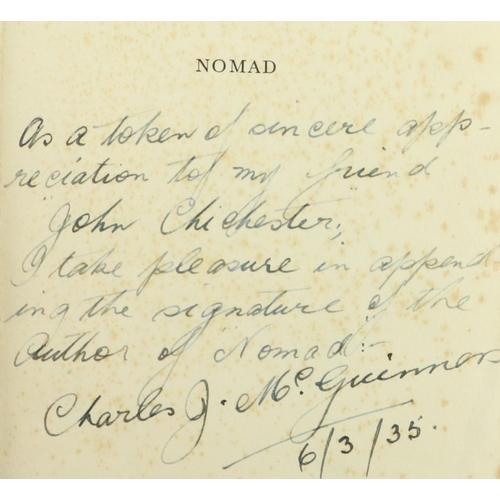 NOMAD
As a token of sincere app-
reciation to my friend
John Chichester,
I take pleasure in append
ing the signature of the
Author of Nomad:-
Charles J. McGuinness
6/3/35.